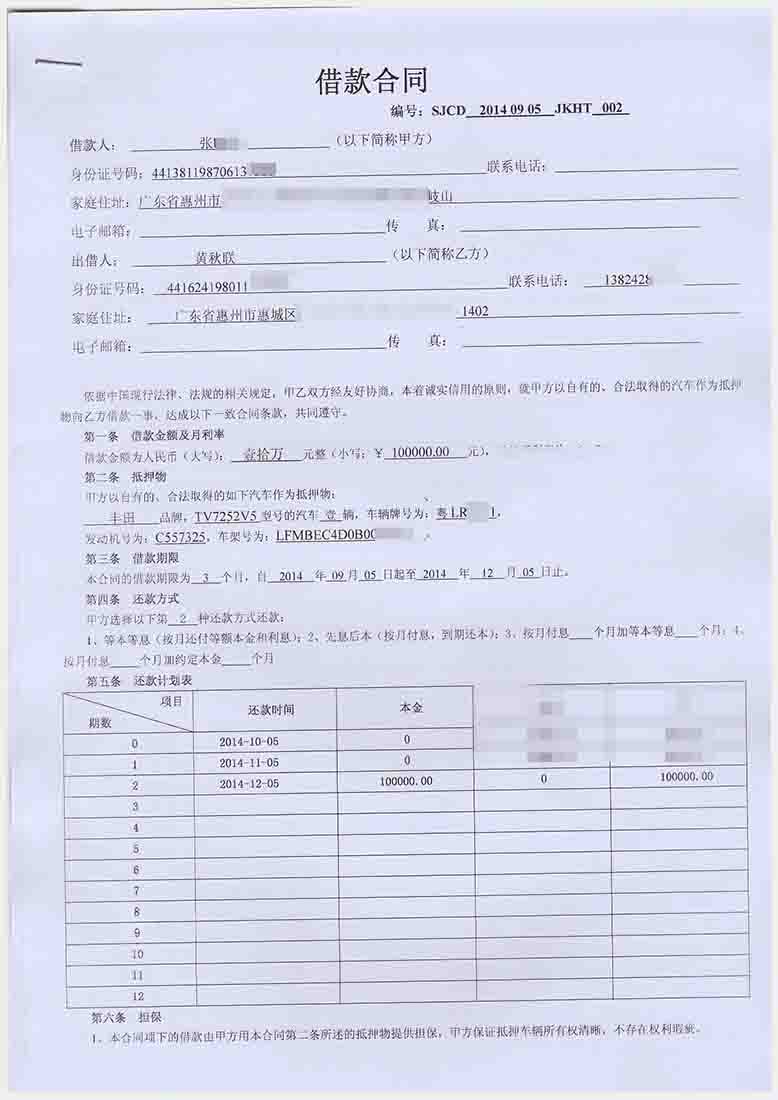 借款合同
编号：SJCD 2014 09 05 JKHT 002
借款人： 张 （以下简称甲方）
身份证号码：44138119870613 联系电话：
家庭住址：广东省惠州市 岐山
电子邮箱： 传 真：
出借人： 黄秋联 （以下简称乙方）
身份证号码： 441624198011 联系电话： 1382428
家庭住址： 广东省惠州市惠城区 1402
电子邮箱： 传 真：
依据中国现行法律、法规的相关规定，甲乙双方经友好协商，本着诚实信用的原则，就甲方以自有的、合法取得的汽车作为抵押
物向乙方借款一事，达成以下一致合同条款，共同遵守。
第一条 借款金额及月利率
借款金额为人民币（大写）： 壹拾万 元整（小写：￥ 100000.00 元），
第二条 抵押物
甲方以自有的、合法取得的如下汽车作为抵押物：
丰田 品牌，TV7252V5 型号的汽车 壹 辆，车辆牌号为：粤LR 1，
发动机号为：C557325，车架号为：LFMBEC4D0B00
第三条 借款期限
本合同的借款期限为 3 个月，自 2014 年 09 月 05 日起至 2014 年 12 月 05 日止。
第四条 还款方式
甲方选择以下第 2 种还款方式还款：
1、等本等息（按月还付等额本金和利息）；2、先息后本（按月付息，到期还本）；3、按月付息____个月加等本等息____个月；4、
按月付息____个月加约定本金____个月
第五条 还款计划表
项目
期数 还款时间 本金
0 2014-10-05 0
1 2014-11-05 0
2 2014-12-05 100000.00 0 100000.00
3
4
5
6
7
8
9
10
11
12
第六条 担保
1、本合同项下的借款由甲方用本合同第二条所述的抵押物提供担保，甲方保证抵押车辆所有权清晰，不存在权利瑕疵。